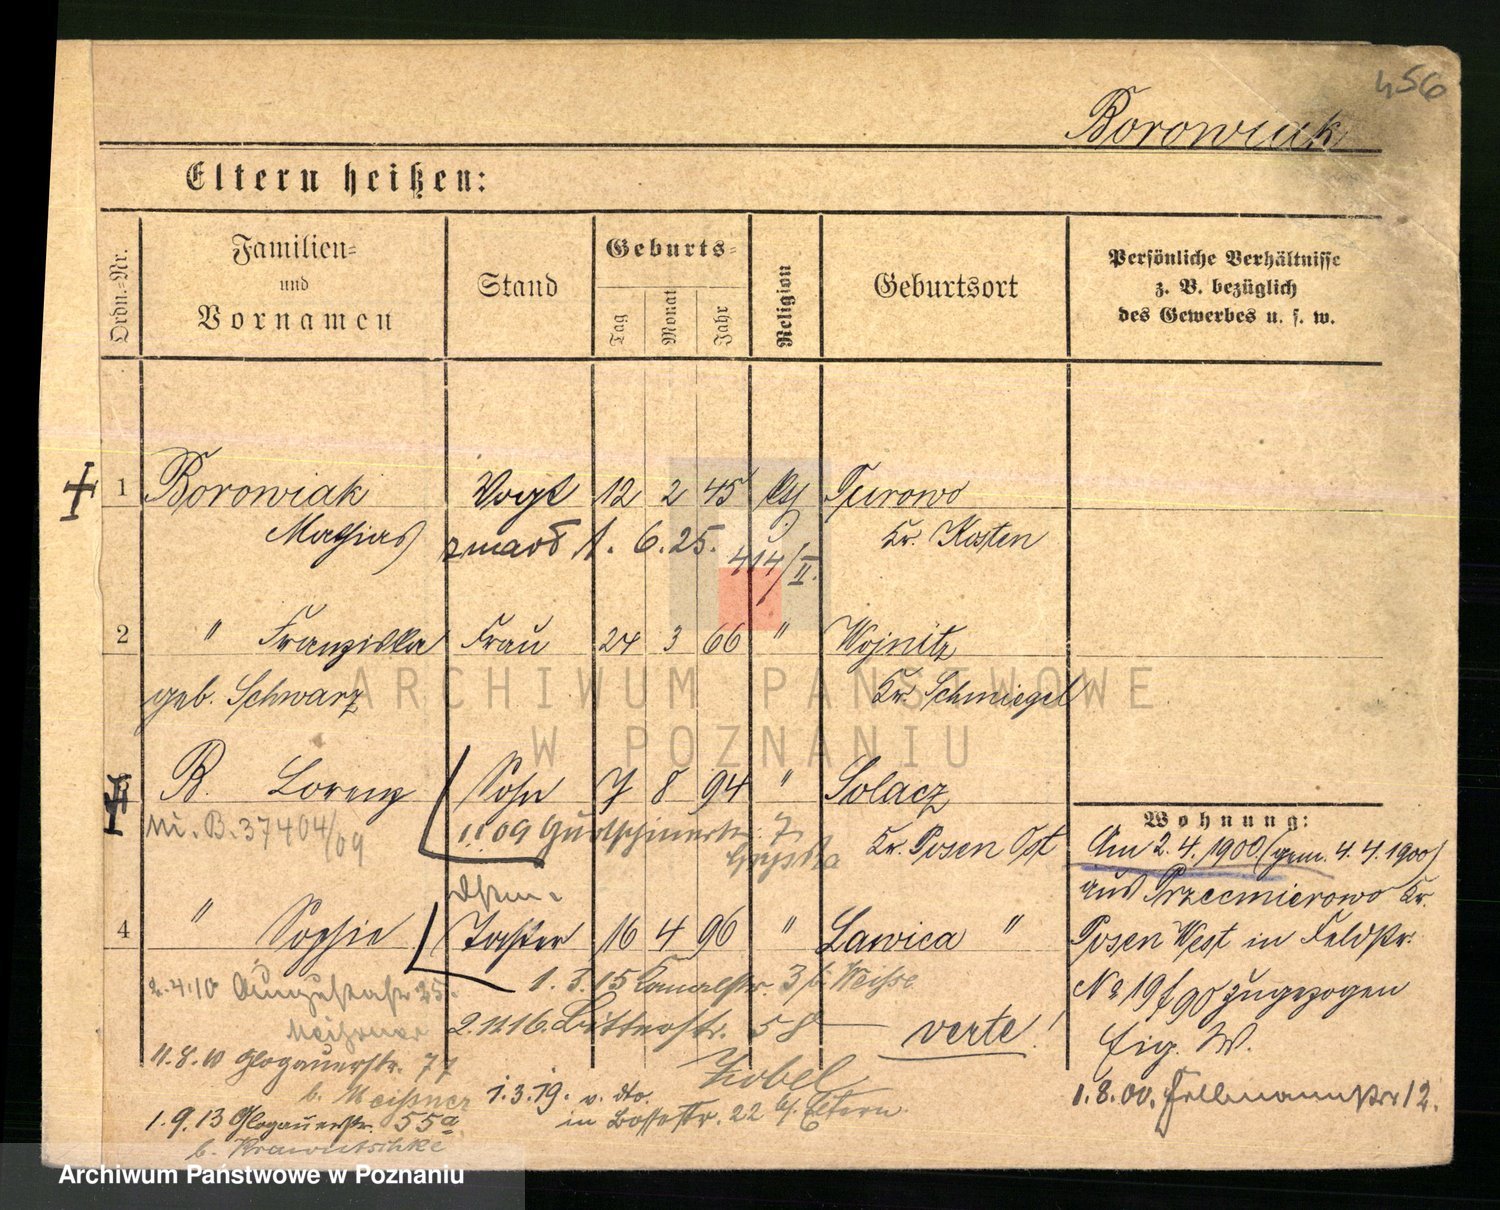 456
Borowiak
Eltern heißen:
Ordn.-Nr.
Familien-
und
Vornamen
Stand
Geburts-
Tag
Monat
Jahr
Religion
Geburtsort
Persönliche Verhältnisse
z. B. bezüglich
des Gewerbes u. s. w.
1 Borowiak Vogt 12 2 45 Turowo
Mathias zmarł 1. 6. 25. Kr. Kosten
414/II.
2 " Franziska Frau 24 3 66 " Wojnitz
geb. Schwarz Kr. Schmiegel
ARCHIWUM PAŃSTWOWE
W POZNANIU
3 B. Lorenz Sohn 7 8 94 " Solacz
B. 37404/09 Kr. Posen Ost
4 " Sophie Tochter 16 4 96 " Lawica "
Wohnung:
Am 2. 4. 1900 (gem. 4. 4. 1900)
aus Przecmierowo Kr.
Posen West in Feldstr.
No 19/20 zugezogen
Eig. W.
1. 8. 00. 12.
2. 4. 10 Augustastr 25.
Meissner
11. 8. 10 Glogauerstr. 77
b. Meissner
1. 9. 13 Glogauerstr. 55a
b. Krawutschke
1. 3. 15 Kanalstr. 3 b. Weisse
2. 11. 16. Bitterstr. 58
verte!
Zobel
1. 3. 19. v. dto.
in Bossestr. 22 b/ Eltern.
Archiwum Państwowe w Poznaniu